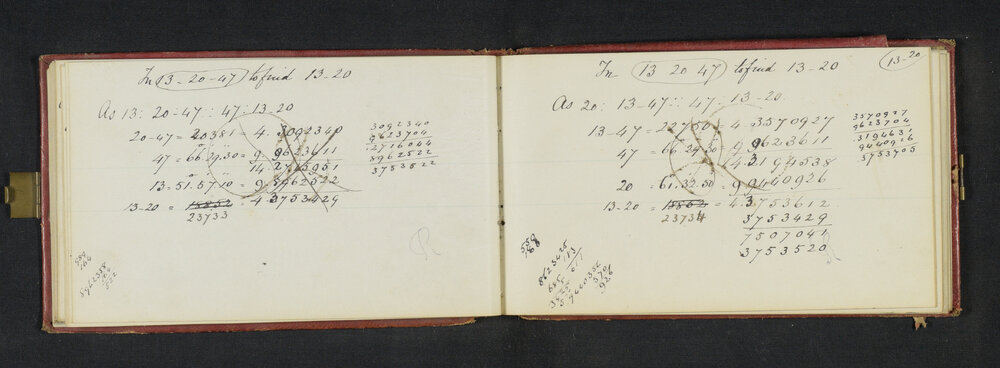 In 13-20-47 to find 13-20
As 13: 20-47 :: 47 : 13-20
20-47 = 20381 = 4.3092340
47 = 66.29.30 = 9.9623611
14.2715951
13 = 51.57.10 = 9.8962522
13-20 = 15852 = 4.3753429
23733
3092340
9623704
12716044
8962522
3753522
584
164
8962358
164
522
R
13-20
In 13 20 47 to find 13-20
As 20: 13-47 :: 47 : 13-20.
13-47 = 22750 = 4.3570927
47 = 66.29.30 = 9.9623611
14.3194538
20 = 61.32.50 = 9.9440926
13-20 = 15852 = 4.3753612
23734
3753429
7507041
3753520
3570927
9623704
3194631
9440926
3753705
550
168